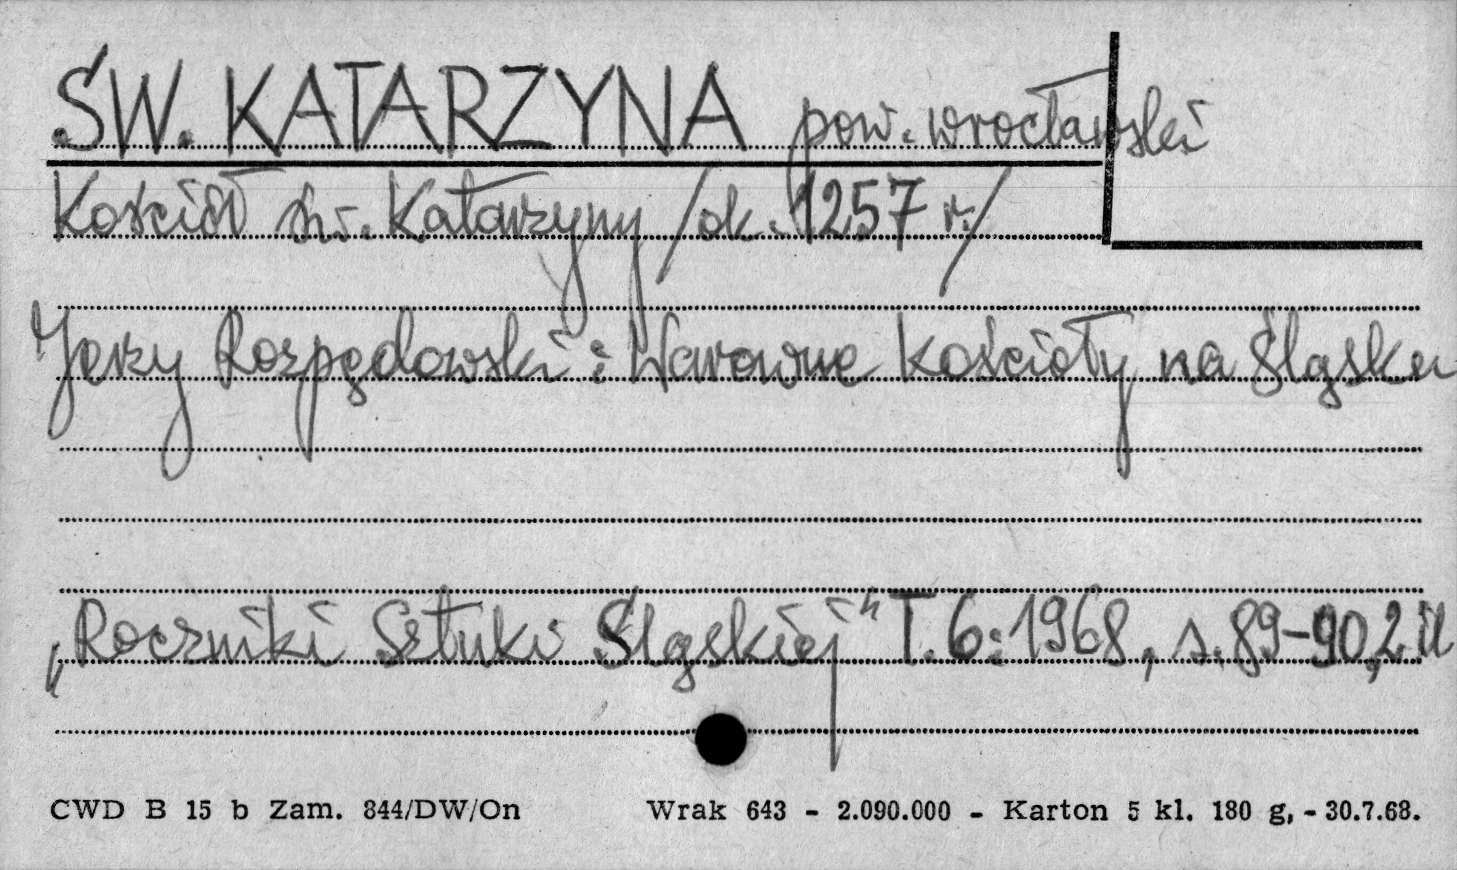 ŚW. KATARZYNA pow. wrocławski
Kościół św. Katarzyny /ok. 1257 r./
Jerzy Rozpędowski: Warowne kościoły na Śląsku
„Roczniki Sztuki Śląskiej" T. 6: 1968, s. 89-90, 2 il
CWD B 15 b Zam. 844/DW/On Wrak 643 - 2.090.000 - Karton 5 kl. 180 g, - 30.7.68.